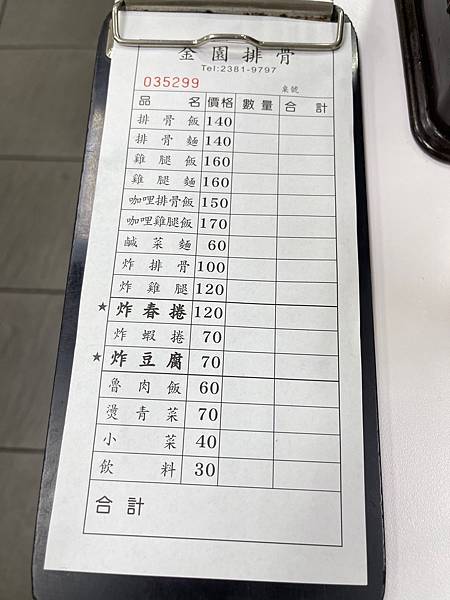 金園排骨
Tel:2381-9797
035299 桌號
品名 價格 數量 合計
排骨飯 140
排骨麵 140
雞腿飯 160
雞腿麵 160
咖哩排骨飯 150
咖哩雞腿飯 170
鹹菜麵 60
炸排骨 100
炸雞腿 120
★炸春捲 120
炸蝦捲 70
★炸豆腐 70
魯肉飯 60
燙青菜 70
小菜 40
飲料 30
合計